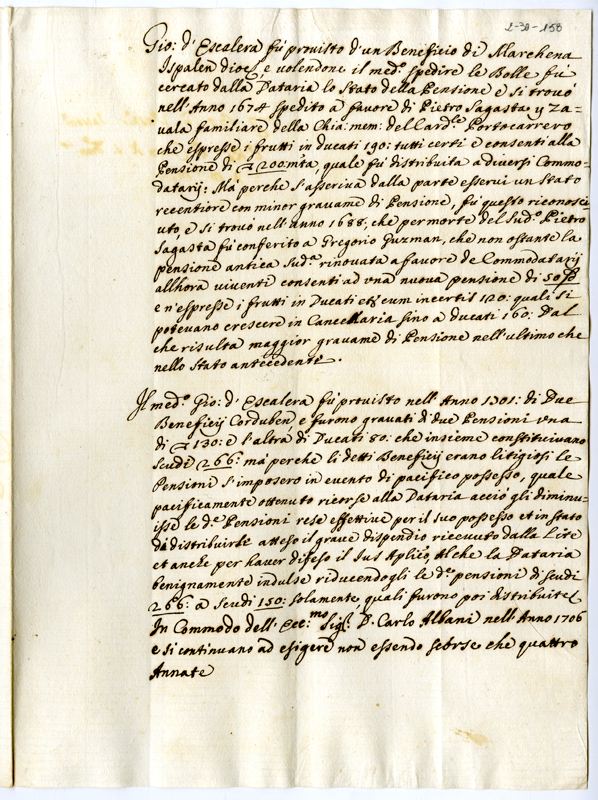 2-30-158
Gio: d'Escalera fù provisto d'un Beneficio di Marchena
Ispalen dioces, e volendone il med.º spedire le Bolle fu
cercato dalla Dataria lo Stato della Pensione e si trovò
nell'Anno 1674 spedito à favore di Pietro Sagasta y Za=
vala familiare della Chia: mem: del Card.le Portocarrero
che espresse i frutti in ducati 190: tutti certi e consentì alla
Pensione di 200 m.ta, quale fù distribuita a diversi Commo=
datarij: Mà perche s'asseriva dalla parte esservi un Stato
recentiore con minor gravame di Pensione, fù questo riconosci=
uto, e si trovò nell'anno 1688, che per morte del Sud.º Pietro
Sagasta fù conferito a Gregorio Guzman, che non ostante la
pensione antica Sud.a rinovata a favore de Commodatarij
allhora viventi consentì ad una nuova pensione di 50
e n'espresse i frutti in Ducati et cum incertis 120: quali si
potevano crescere in Cancellaria sino a ducati 160: Dal
che risulta maggior gravame di Pensione nell'ultimo che
nello Stato antecedente.
Il med.º Gio: d'Escalera fù provisto nell'Anno 1301: di Due
Beneficij Corduben, e furono gravati di due Pensioni una
di 130: e l'altra di Ducati 80: che insieme constituivano
Scudi 266: mà perche li detti Beneficij erano litigiosi le
Pensioni s'imposero in evento di pacifico possesso, quale
pacificamente ottenuto ricorse alla Dataria acciò gli diminu=
isse le d.e Pensioni rese effettive per il suo possesso et in stato
di distribuirle atteso il grave dispendio ricevuto dalla Lite
et anche per haver difeso il Jus Aplico, Alche la Dataria
benignamente indulse riducendogli le d.e pensioni di scudi
266: a Scudi 150: solamente, quali furono poi distribuite
In Commodo dell'Ecc.mo Sig.r D. Carlo Albani nell'Anno 1706
e si continuano ad esigere non essendo scorse che quattro
Annate